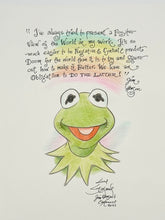 "I've always tried to present a Positive
View of the World in my work. It's so
much easier to be Negative & Cynical & predict
Doom for the world than it is to try and Figure
out how to make it Better. We have an
Obligation to DO THE LATTER!"
Jim Henson